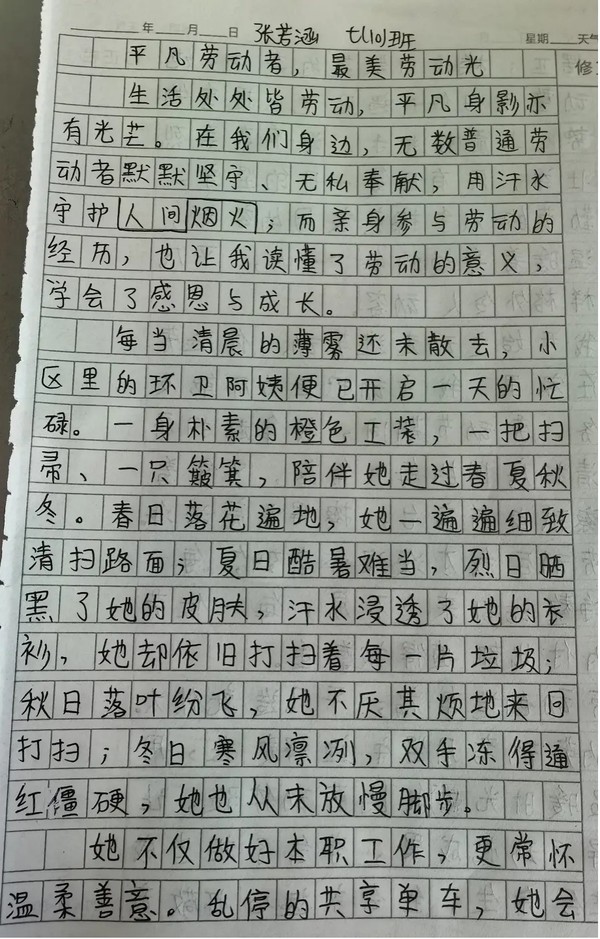 年 月 日 张芳涵 七(10)班 星期 天气
平凡劳动者，最美劳动光 修
生活处处皆劳动，平凡身影亦
有光芒。在我们身边，无数普通劳
动者默默坚守、无私奉献，用汗水
守护人间烟火；而亲身参与劳动的
经历，也让我读懂了劳动的意义，
学会了感恩与成长。
每当清晨的薄雾还未散去，小
区里的环卫阿姨便已开启一天的忙
碌。一身朴素的橙色工装，一把扫
帚、一只簸箕，陪伴她走过春夏秋
冬。春日落花遍地，她一遍遍细致
清扫路面；夏日酷暑难当，烈日晒
黑了她的皮肤，汗水浸透了她的衣
衫，她却依旧打扫着每一片垃圾；
秋日落叶纷飞，她不厌其烦地来回
打扫；冬日寒风凛冽，双手冻得通
红僵硬，她也从未放慢脚步。
她不仅做好本职工作，更常怀
温柔善意。乱停的共享单车，她会